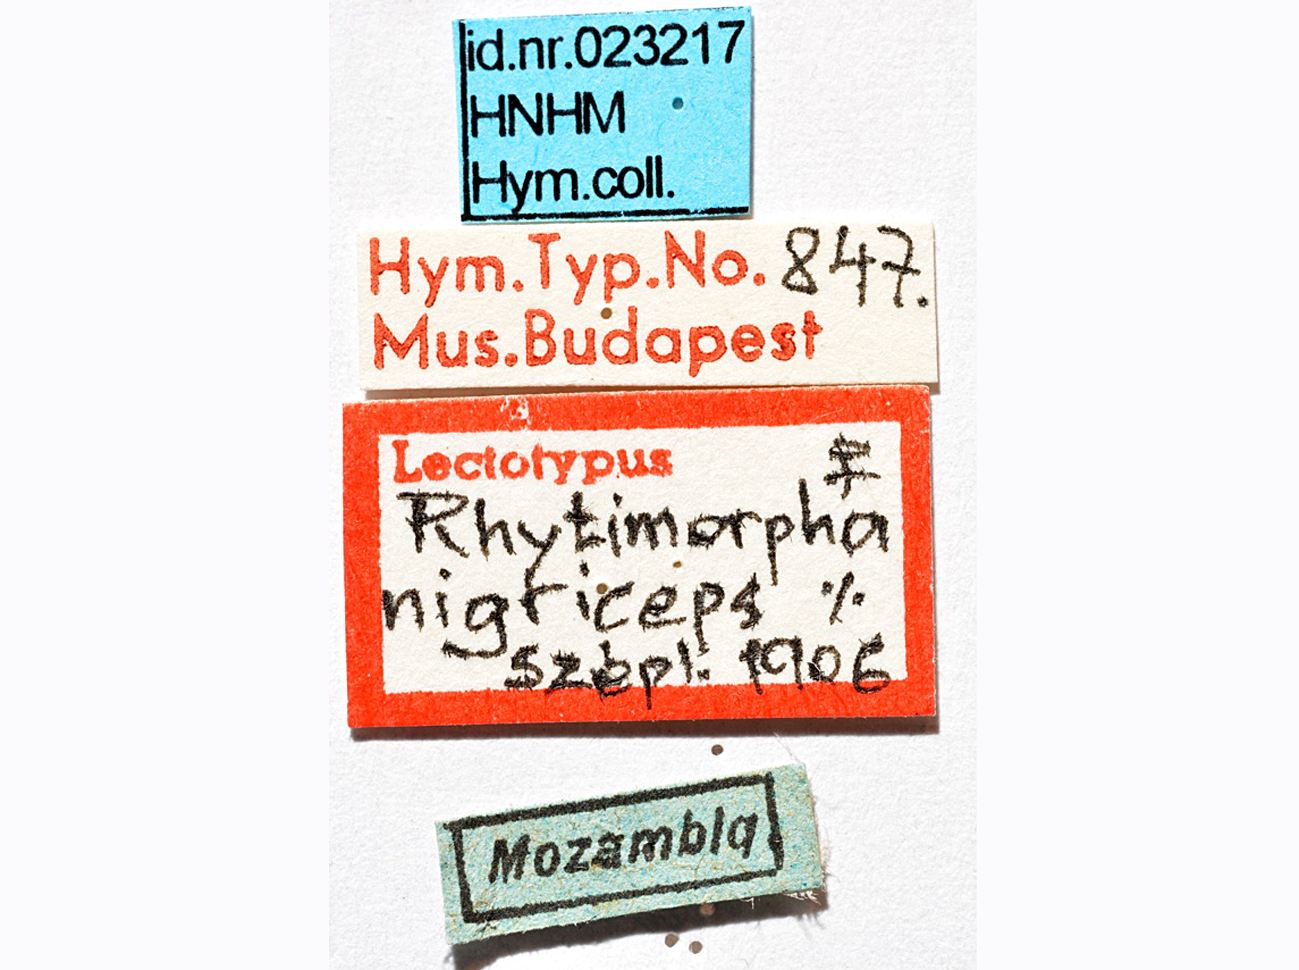 id.nr.023217
HNHM
Hym.coll.
Hym.Typ.No. 847.
Mus.Budapest
Lectotypus ♀
Rhytimorpha
nigriceps ⁒
Szépl. 1906
Mozambiq